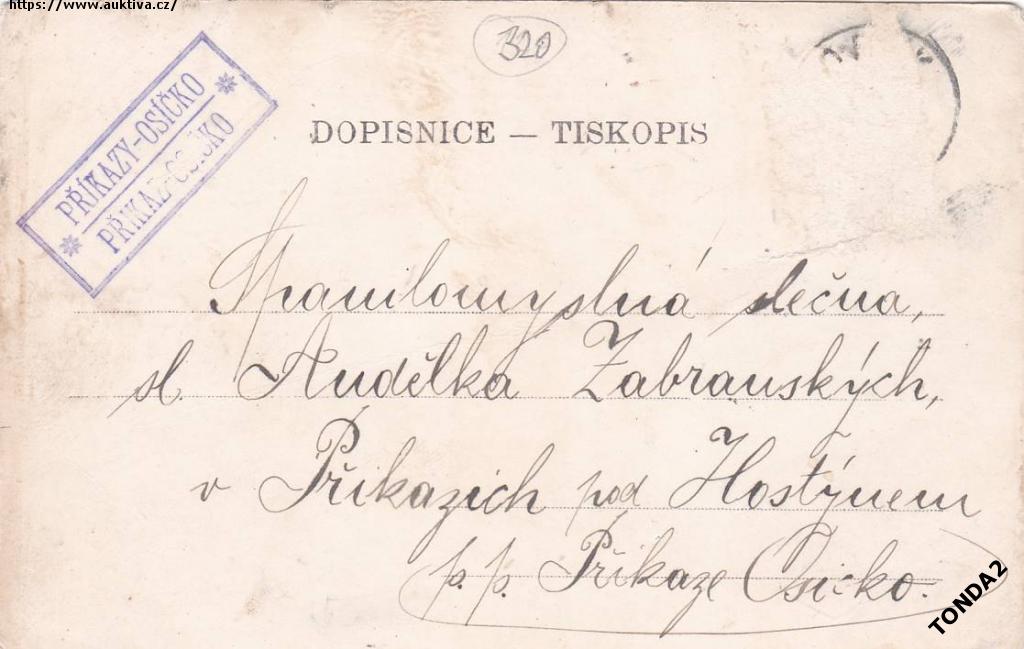 https://www.auktiva.cz/
320
PŘÍKAZY-OSÍČKO
PŘIKAZ-OSIČKO
DOPISNICE — TISKOPIS
Spanilomyslná slečna,
sl. Andělka Zabranských,
v Přikazich pod Hostýnem
p. p. Přikaze Osicko.
TONDA2